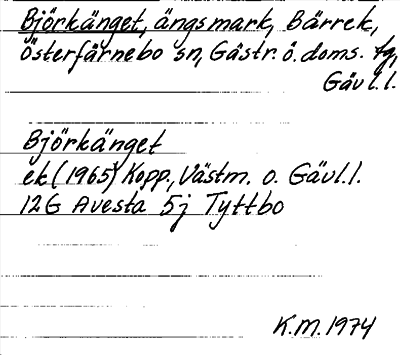 Björkänget, ängsmark, Bärrek,
Österfärnebo sn, Gästr. ö. doms. tg,
Gävl.l.
Björkänget
ek (1965) Kopp., Västm. o. Gävl.l.
12G Avesta 5j Tyttbo
K.M. 1974